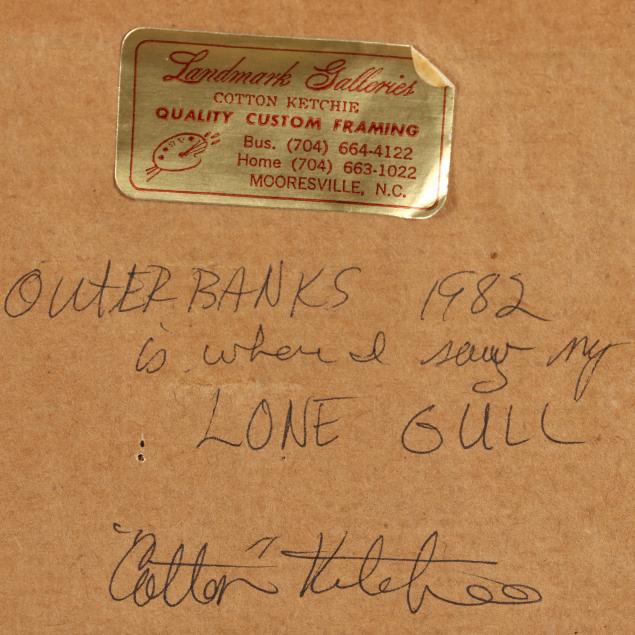 Landmark Galleries
COTTON KETCHIE
QUALITY CUSTOM FRAMING
Bus. (704) 664-4122
Home (704) 663-1022
MOORESVILLE, N.C.
OUTER BANKS 1982
is where I saw my
LONE GULL
"Cotton" Ketchie